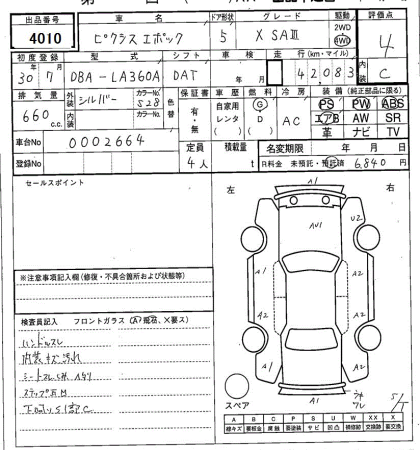 出品番号 車名 ドア形状 グレード 駆動 評価点
4010 ピクシス エポック 5 X SAⅢ 2WD 4WD 4
初度登録 型式 シフト 車検 走行(km・マイル) 内装
30年 7月 DBA-LA360A DAT 年 月 42,083 C
排気量 外装 シルバー カラーNo. S28 色替 保証書 車歴 燃料 冷房 装備(純正部品に限る)
660 c.c. 内装 カラーNo. 有・無 自家用 レンタ ( ) G D ( ) AC PS PW ABS
エアB AW SR
革 ナビ TV
車台No 0002664
定員 積載量 名変期限 年 月 日
登録No 4人 t R料金 未預託・預託済 6,840円
セールスポイント
左 右
A1
AU1 U2
A1 A2
A2 A2
A1 A1
※注意事項記入欄(修復・不具合箇所および状態等)
検査員記入 フロントガラス(A)飛石、X要ス)
ハンドルスレ
内装キズ汚れ
スペア
A B C P S U W XX X
線キズ 要板金 腐蝕 要塗装 サビ 凹凸 補修跡 交換跡 要交換